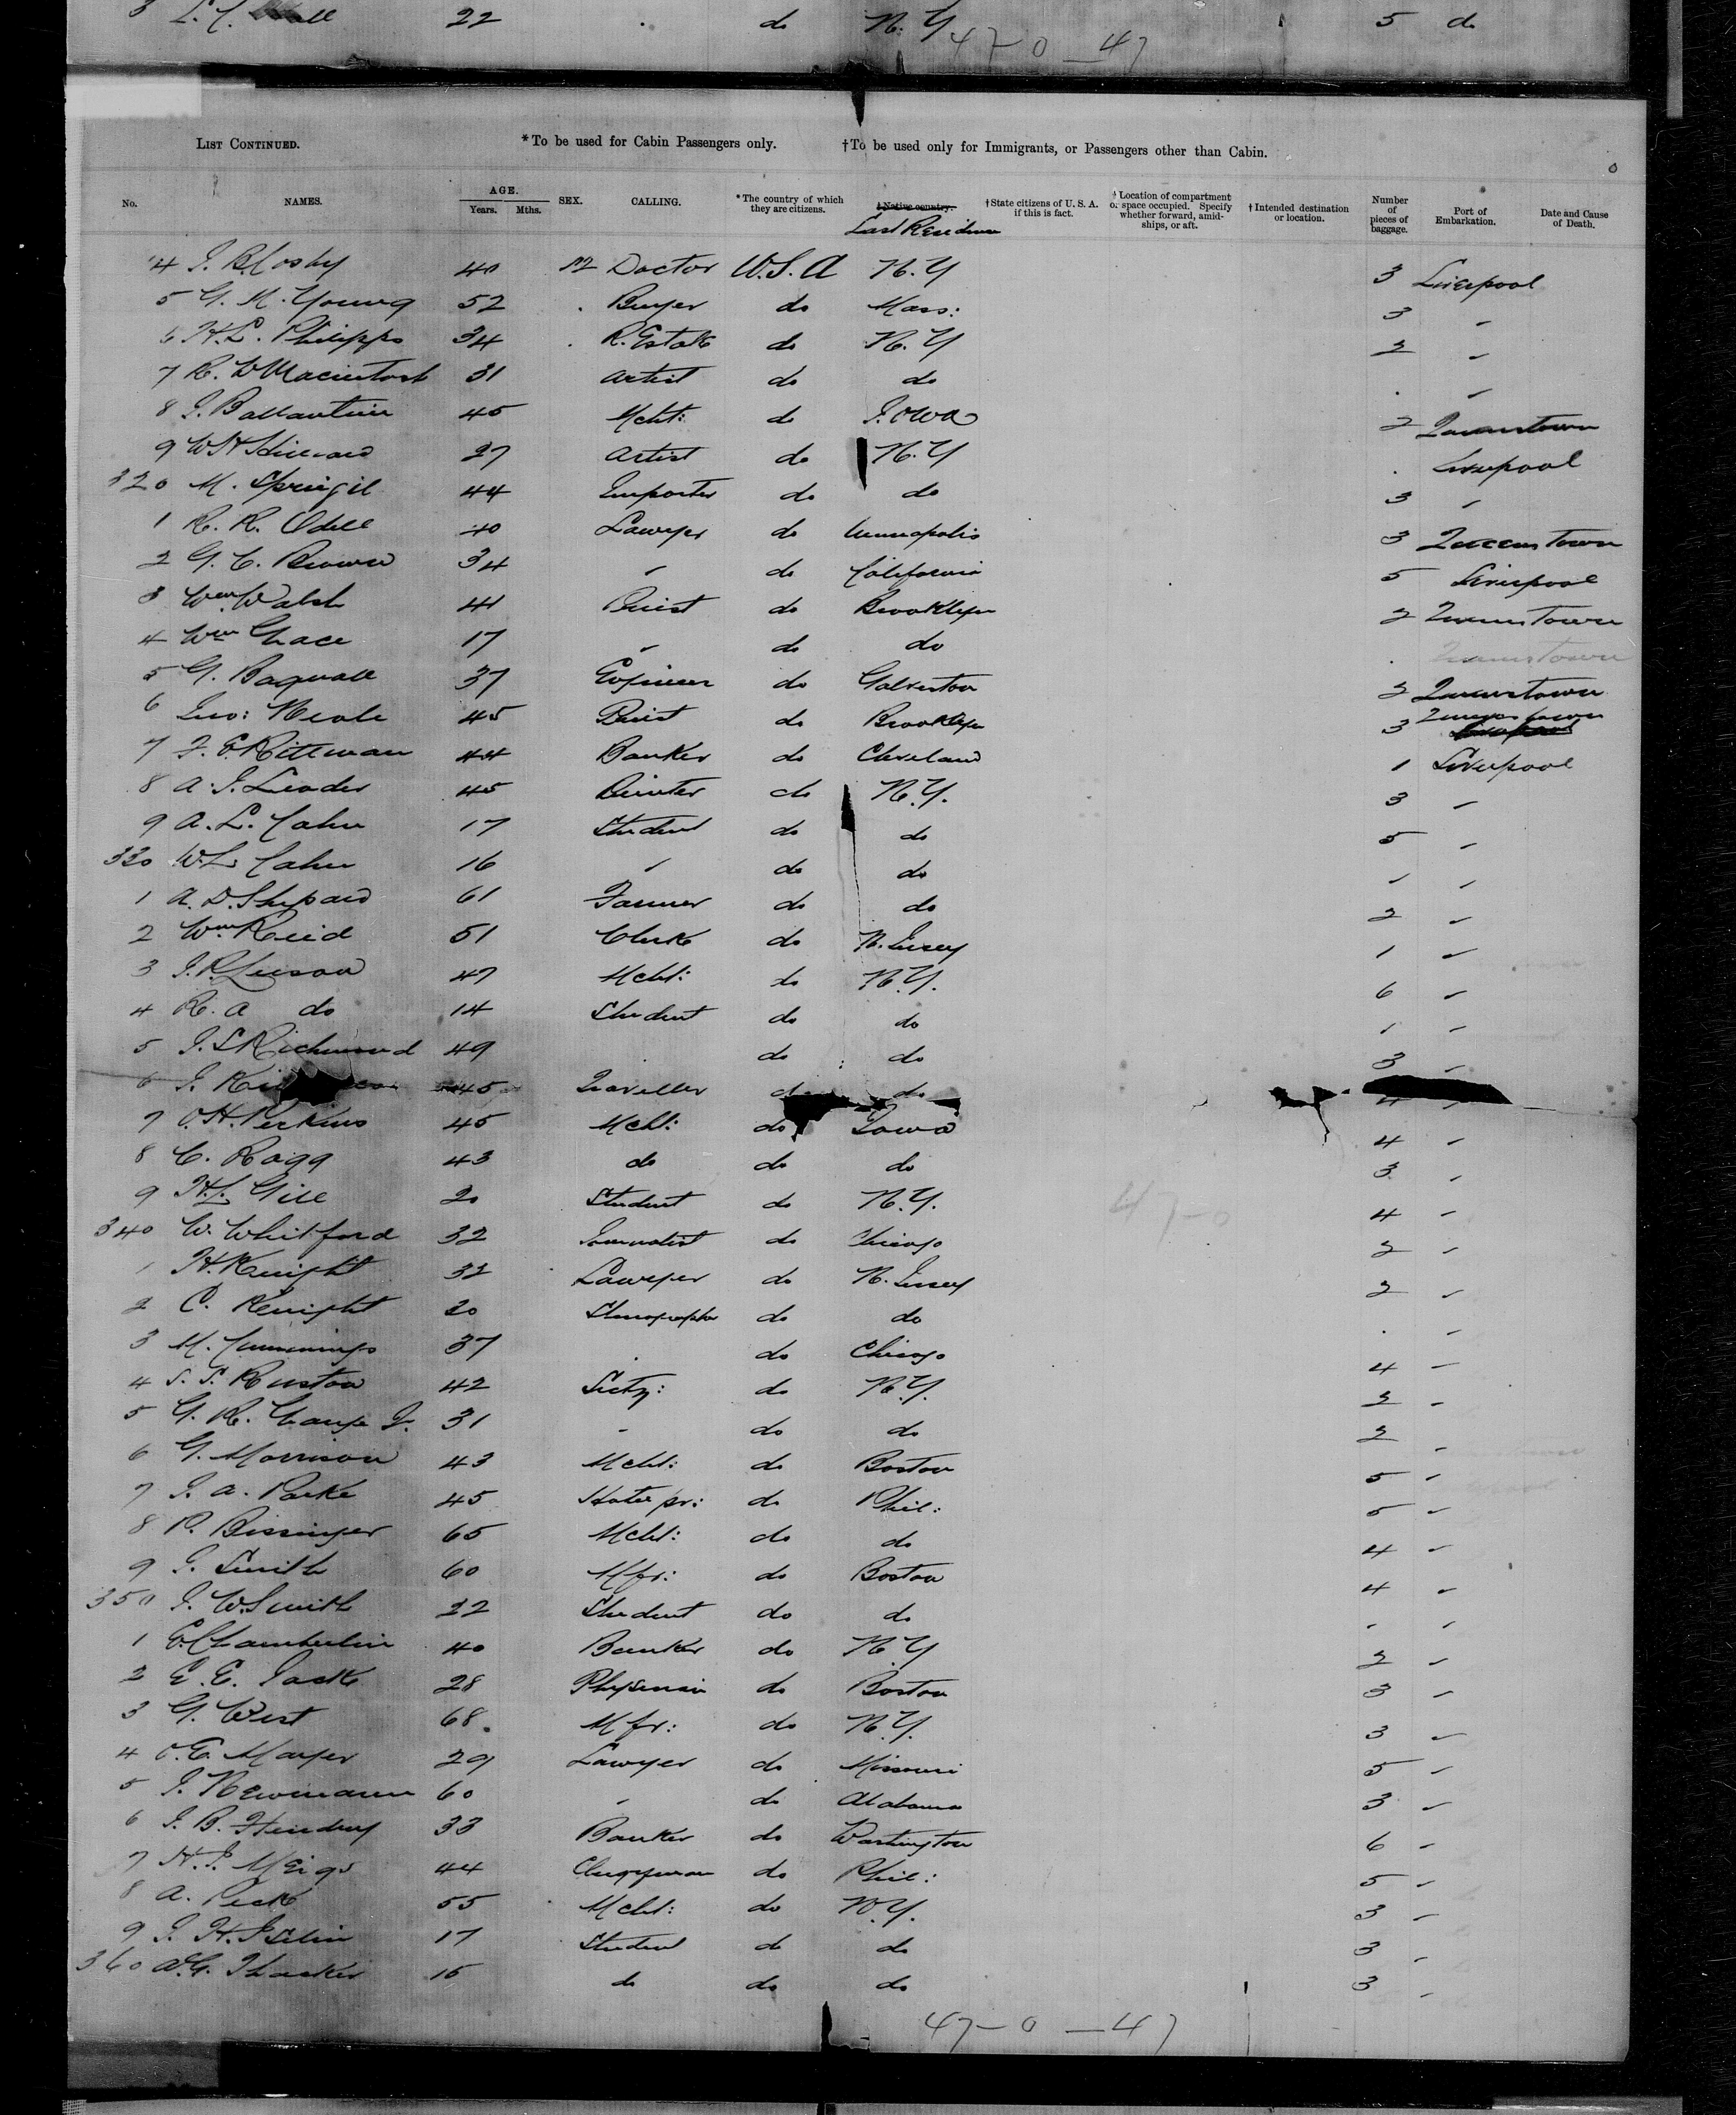 3 22 do N.Y 5 do
47-0-47
LIST CONTINUED. *To be used for Cabin Passengers only. †To be used only for Immigrants, or Passengers other than Cabin.
No. NAMES. AGE. Years. Mths. SEX. CALLING. *The country of which they are citizens. †Native country. Last Residence †State citizens of U. S. A. if this is fact. †Location of compartment or space occupied. Specify whether forward, amidships, or aft. †Intended destination or location. Number of pieces of baggage. Port of Embarkation. Date and Cause of Death.
4 J. B. Cosby 40 M Doctor U.S.A N.Y 3 Liverpool
5 G. M. Young 52 Buyer do Mass: 3 "
6 H.L. Philipps 34 R. Estate do N.Y 2 "
7 R. W Macintosh 31 Artist do do "
8 J. Ballantine 45 Mcht: do Iowa 2 Queenstown
9 W H 27 Artist do N.Y Liverpool
320 M. 44 Importer do do 3 "
1 R. R. Odell 40 Lawyer do Minneapolis 3 Queenstown
2 G. C. Brown 34 " do California 5 Liverpool
3 Wm Walsh 41 Priest do Brooklyn 2 Queenstown
4 Wm Grace 17 " do do Queenstown
5 G. Bagnall 37 Engineer do Galveston 2 Queenstown
6 Jno: 45 Priest do Brooklyn 3 Queenstown
7 F. E. Rittman 44 Banker do Cleveland 1 Liverpool
8 A. J. Leader 45 Printer do N.Y. 3 "
9 A. L. Cahn 17 Student do do 5 "
330 W.L Cahn 16 " do do " "
1 A. D. Shepard 61 Farmer do do 2 "
2 Wm Reid 51 Clerk do N. Jersey 1 "
3 J. R. Leeson 47 Mcht: do N.Y. 6 "
4 R. A do 14 Student do do " "
5 J. S Richmond 49 do do 3 "
6 J. 45 Traveller do do 4 "
7 O. H. Perkins 45 Mcht: do Iowa 4 "
8 C. Ragg 43 do do do 3 "
9 H.L. Gill 20 Student do N.Y. 4 "
47-0
340 W. Whitford 32 Journalist do Chicago 2 "
1 H. Knight 32 Lawyer do N. Jersey 2 "
2 C. Knight 20 Stenographer do do "
3 M. Cummings 37 do Chicago 4 "
4 S. S. Ruston 42 Secty: do N.Y. 2 "
5 G. R. 31 " do do 2 "
6 G. Morrison 43 Mcht: do Boston 5 "
7 J. A. Parke 45 do Phil: 5 "
8 P. Bissinger 65 Mcht: do do 4 "
9 J. Smith 60 Mfr: do Boston 4 "
350 J. W. Smith 22 Student do do " "
1 E. Chamberlin 40 Banker do N.Y 2 "
2 E. E. Jack 28 Physician do Boston 3 "
3 G. West 68 Mfr: do N.Y. 3 "
4 O. E. Mayer 29 Lawyer do Missouri 5 "
5 J. Newmann 60 " do Alabama 3 "
6 J. B. Hendry 33 Banker do Washington 6 "
7 H. J. Meigs 44 Clergyman do Phil: 5 "
8 A. Peck 55 Mcht: do N.Y. 3 "
9 J. H. Iselin 17 Student do do 3 "
360 A. G. Thacker 15 do do do 3 "
47-0-47